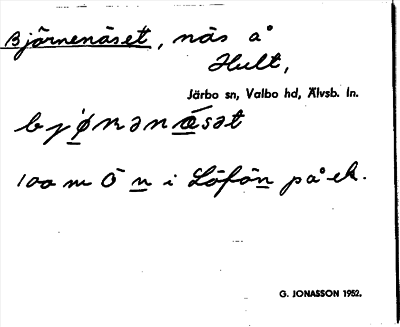 Björnenäset, näs å
Hult,
Järbo sn, Valbo hd, Älvsb. ln.
bjønənǽsət
100 m Ö n i Löfön på ek.
G. JONASSON 1952.